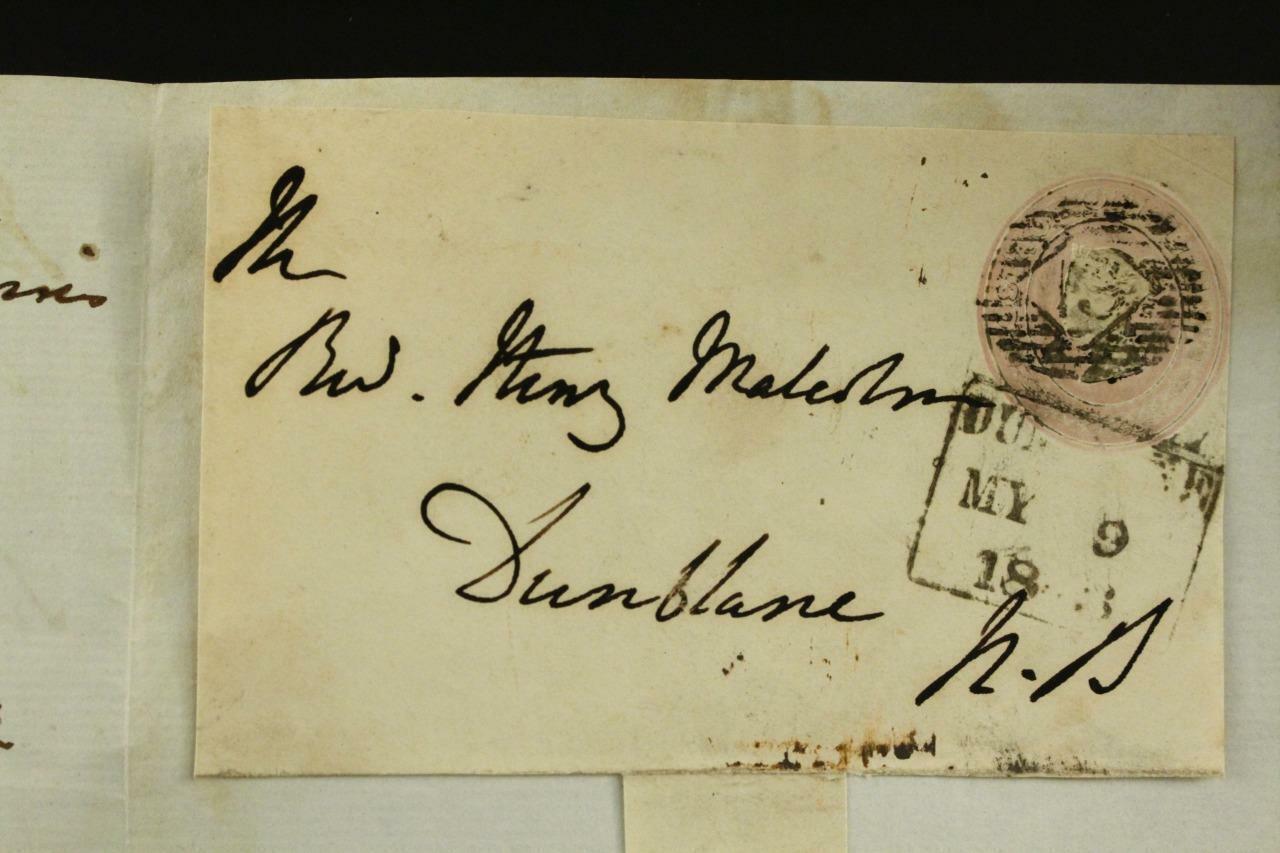 The
Revd. Henry Malcolm
Dunblane
N.B
MY 9
18